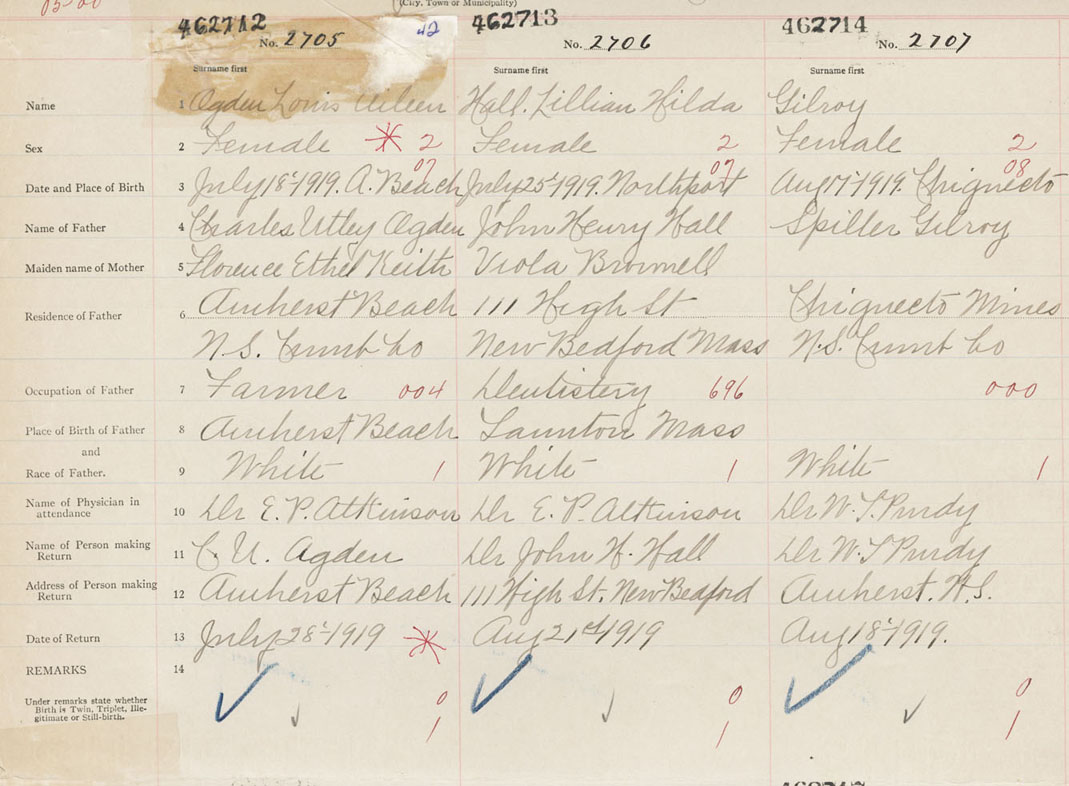 (City, Town or Municipality)
462712 462713 462714
No. 2705 42 No. 2706 No. 2707
Surname first Surname first Surname first
Name 1 Ogden Louis Aileen Hall. Lillian Hilda Gilroy
Sex 2 Female * 2 Female 2 Female 2
07 07 08
Date and Place of Birth 3 July 18th 1919. A. Beach July 25th 1919. Northport Aug 17th 1919. Chignecto
Name of Father 4 Charles Utley Ogden John Henry Hall Spiller Gilroy
Maiden name of Mother 5 Florence Ethel Keith Viola Brownell
Residence of Father 6 Amherst Beach 111 High St Chignecto Mines
N.S. Cumb Co New Bedford Mass N.S. Cumb Co
Occupation of Father 7 Farmer 004 Dentistery 696 000
Place of Birth of Father 8 Amherst Beach Taunton Mass
and
Race of Father. 9 White 1 White 1 White 1
Name of Physician in attendance 10 Dr E. P. Atkinson Dr E. P. Atkinson Dr W. T. Purdy
Name of Person making Return 11 C. U. Agden Dr John H. Hall Dr W. T Purdy
Address of Person making Return 12 Amherst Beach 111 High St. New Bedford Amherst. N.S.
Date of Return 13 July 28th 1919 * Aug 21st 1919 Aug 18th 1919.
REMARKS 14
Under remarks state whether 0 0 0
Birth is Twin, Triplet, Ille-
gitimate or Still-birth. 1 1 1